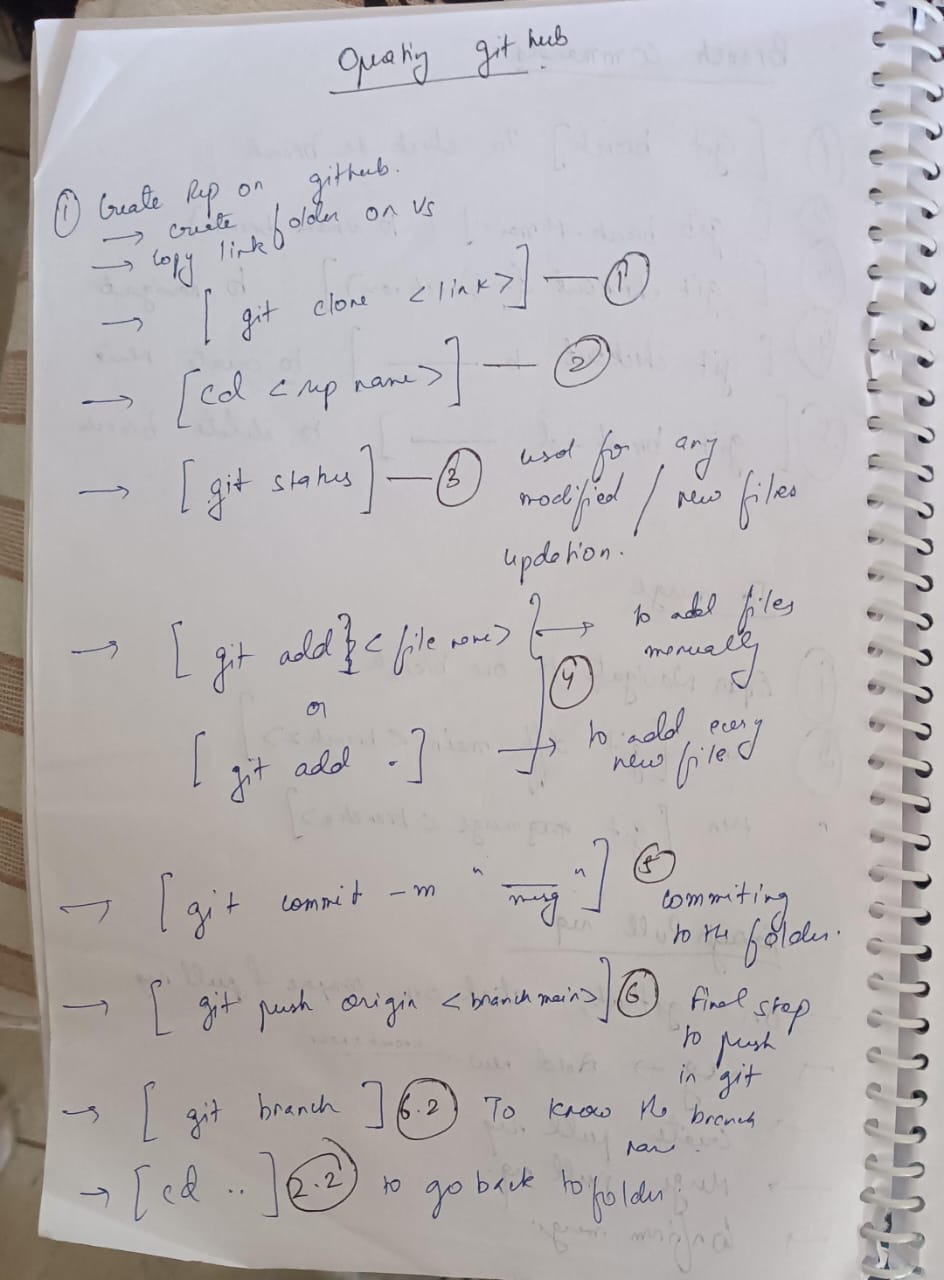 Operating git hub
① Create Rep on github.
→ create folder on VS
→ copy link
→ [ git clone <link>] — ①
→ [cd <rep name>] — ②
→ [git status] — ③ used for any
modified / new files
updation.
→ [ git add] <file name> } → to add files
manually
or ④
[ git add .] → to add every
new file
→ [ git commit -m " msg " ] ⑤ commiting
to the folder.
→ [ git push origin <branch main>] ⑥ final step
to push
in git
→ [ git branch ] 6.2 To know the branch
name
→ [cd ..] 2.2 to go back to folder.